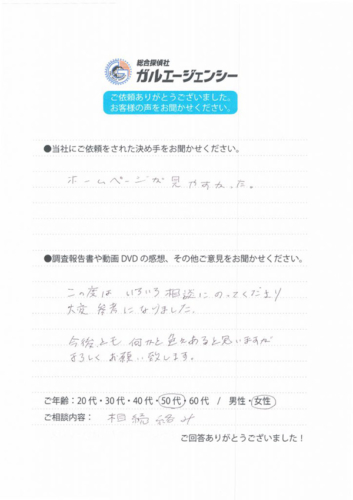 総合探偵社
ガルエージェンシー
ご依頼ありがとうございました。
お客様の声をお聞かせください。
●当社にご依頼をされた決め手をお聞かせください。
ホームページが見やすかった。
●調査報告書や動画DVDの感想、その他ご意見をお聞かせください。
この度はいろいろ相談にのってくださり
大変参考になりました。
今後とも何かと色々あると思いますが
よろしくお願い致します。
ご年齢：20代・30代・40代・50代・60代 / 男性・女性
ご相談内容： 相続絡み
ご回答ありがとうございました！